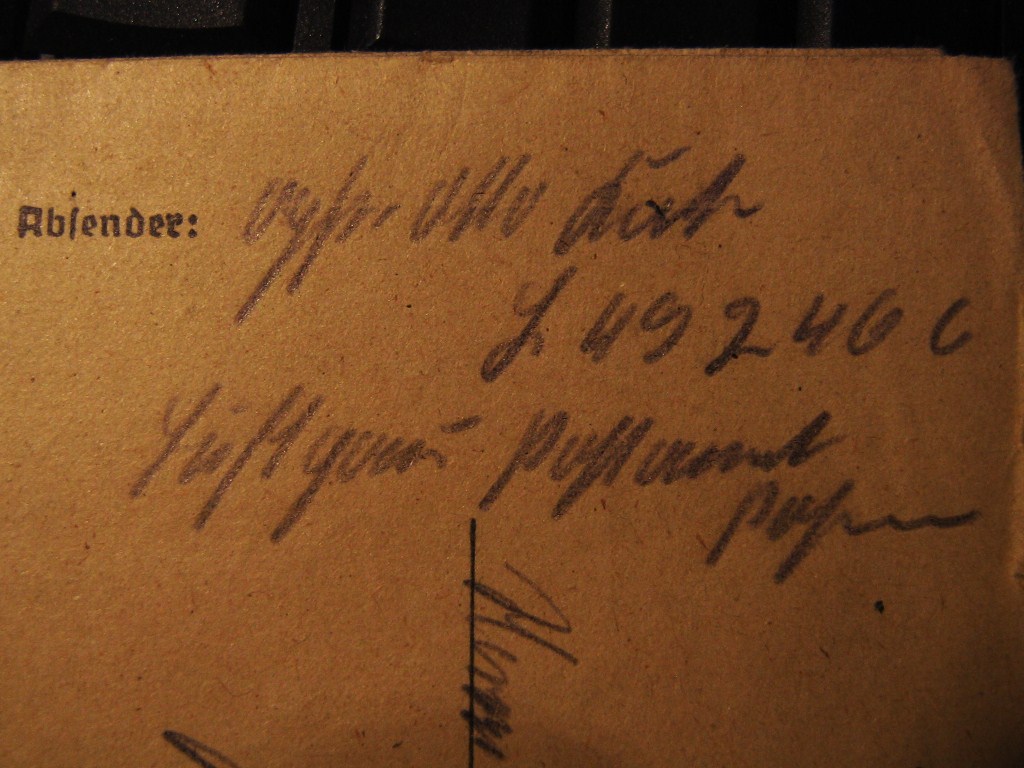 Absender: Gefr. Otto
L 49246 C
Luftgau- Postamt
Posen